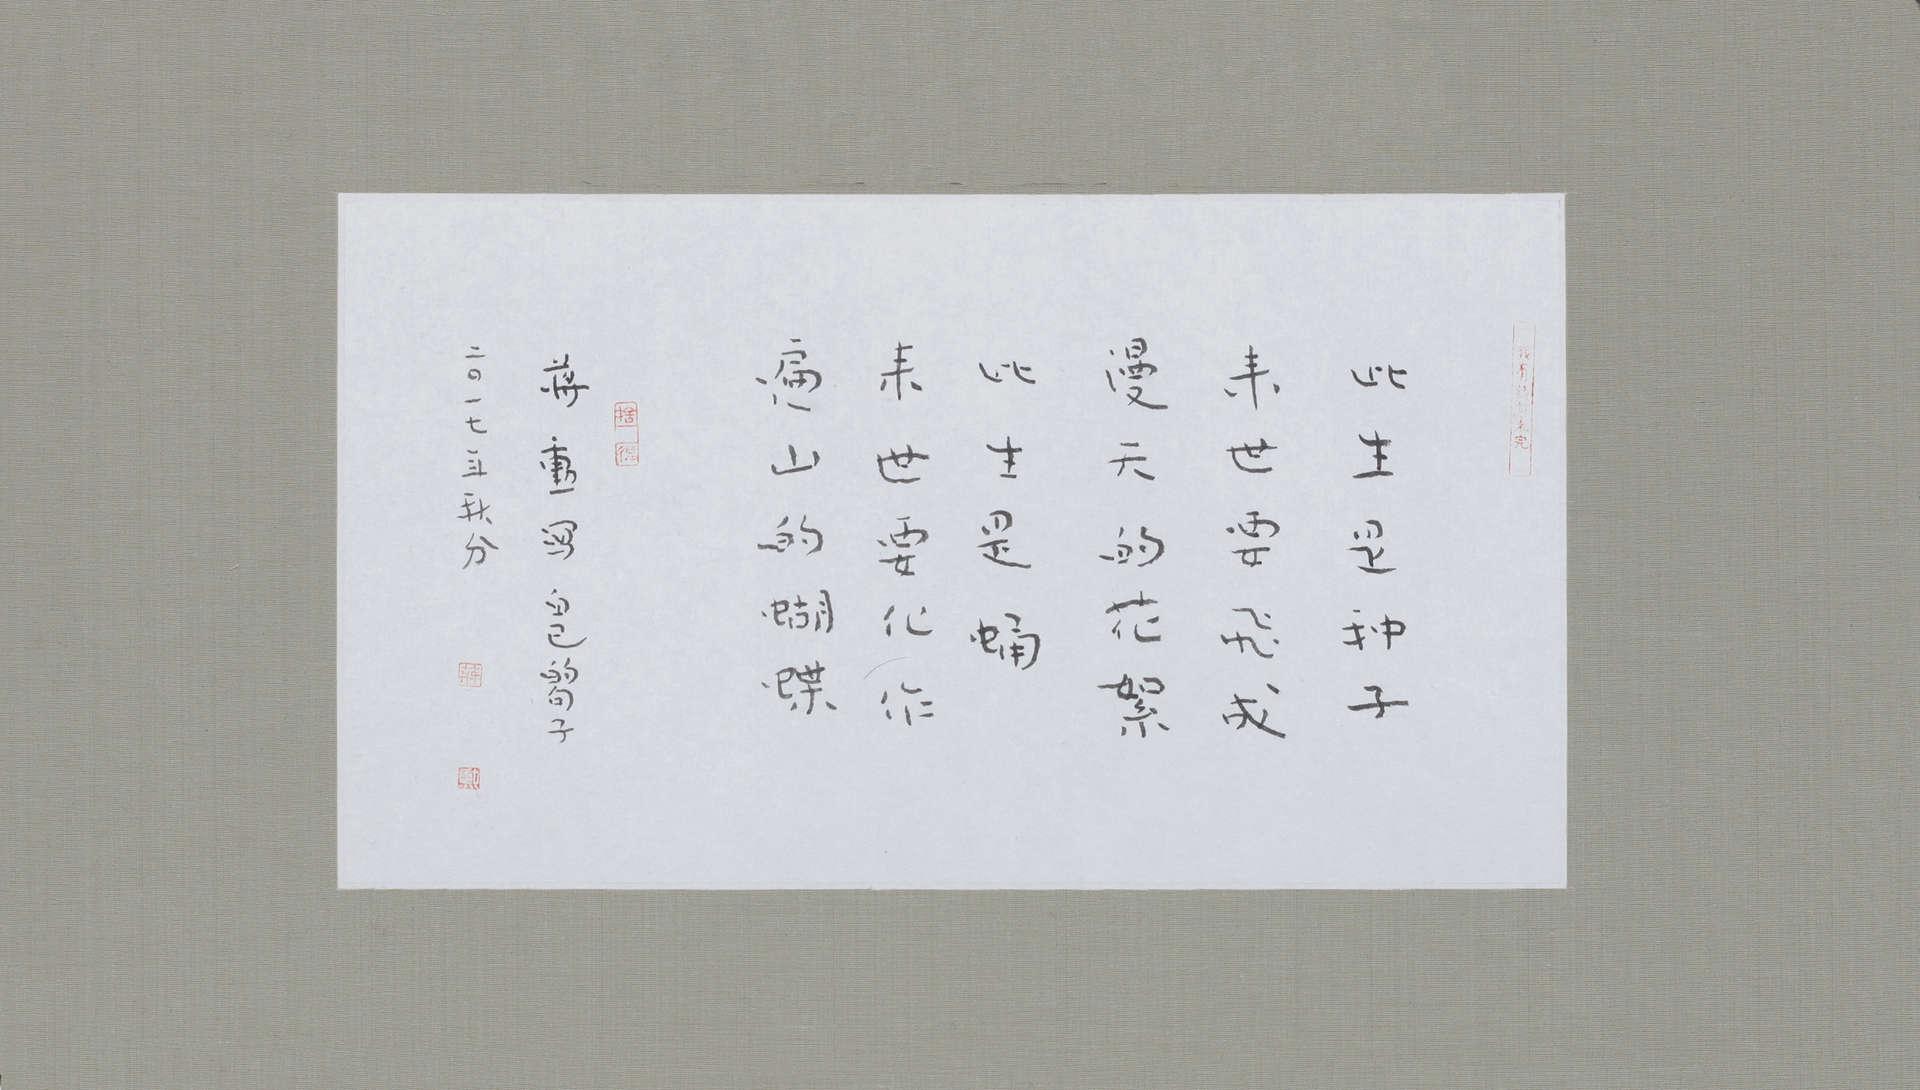 此生是种子
来世要飛成
漫天的花絮
此生是蛹
来世要化作
遍山的蝴蝶
捨得
蔣勳寫自己的句子
二〇一七年秋分
蔣
勳